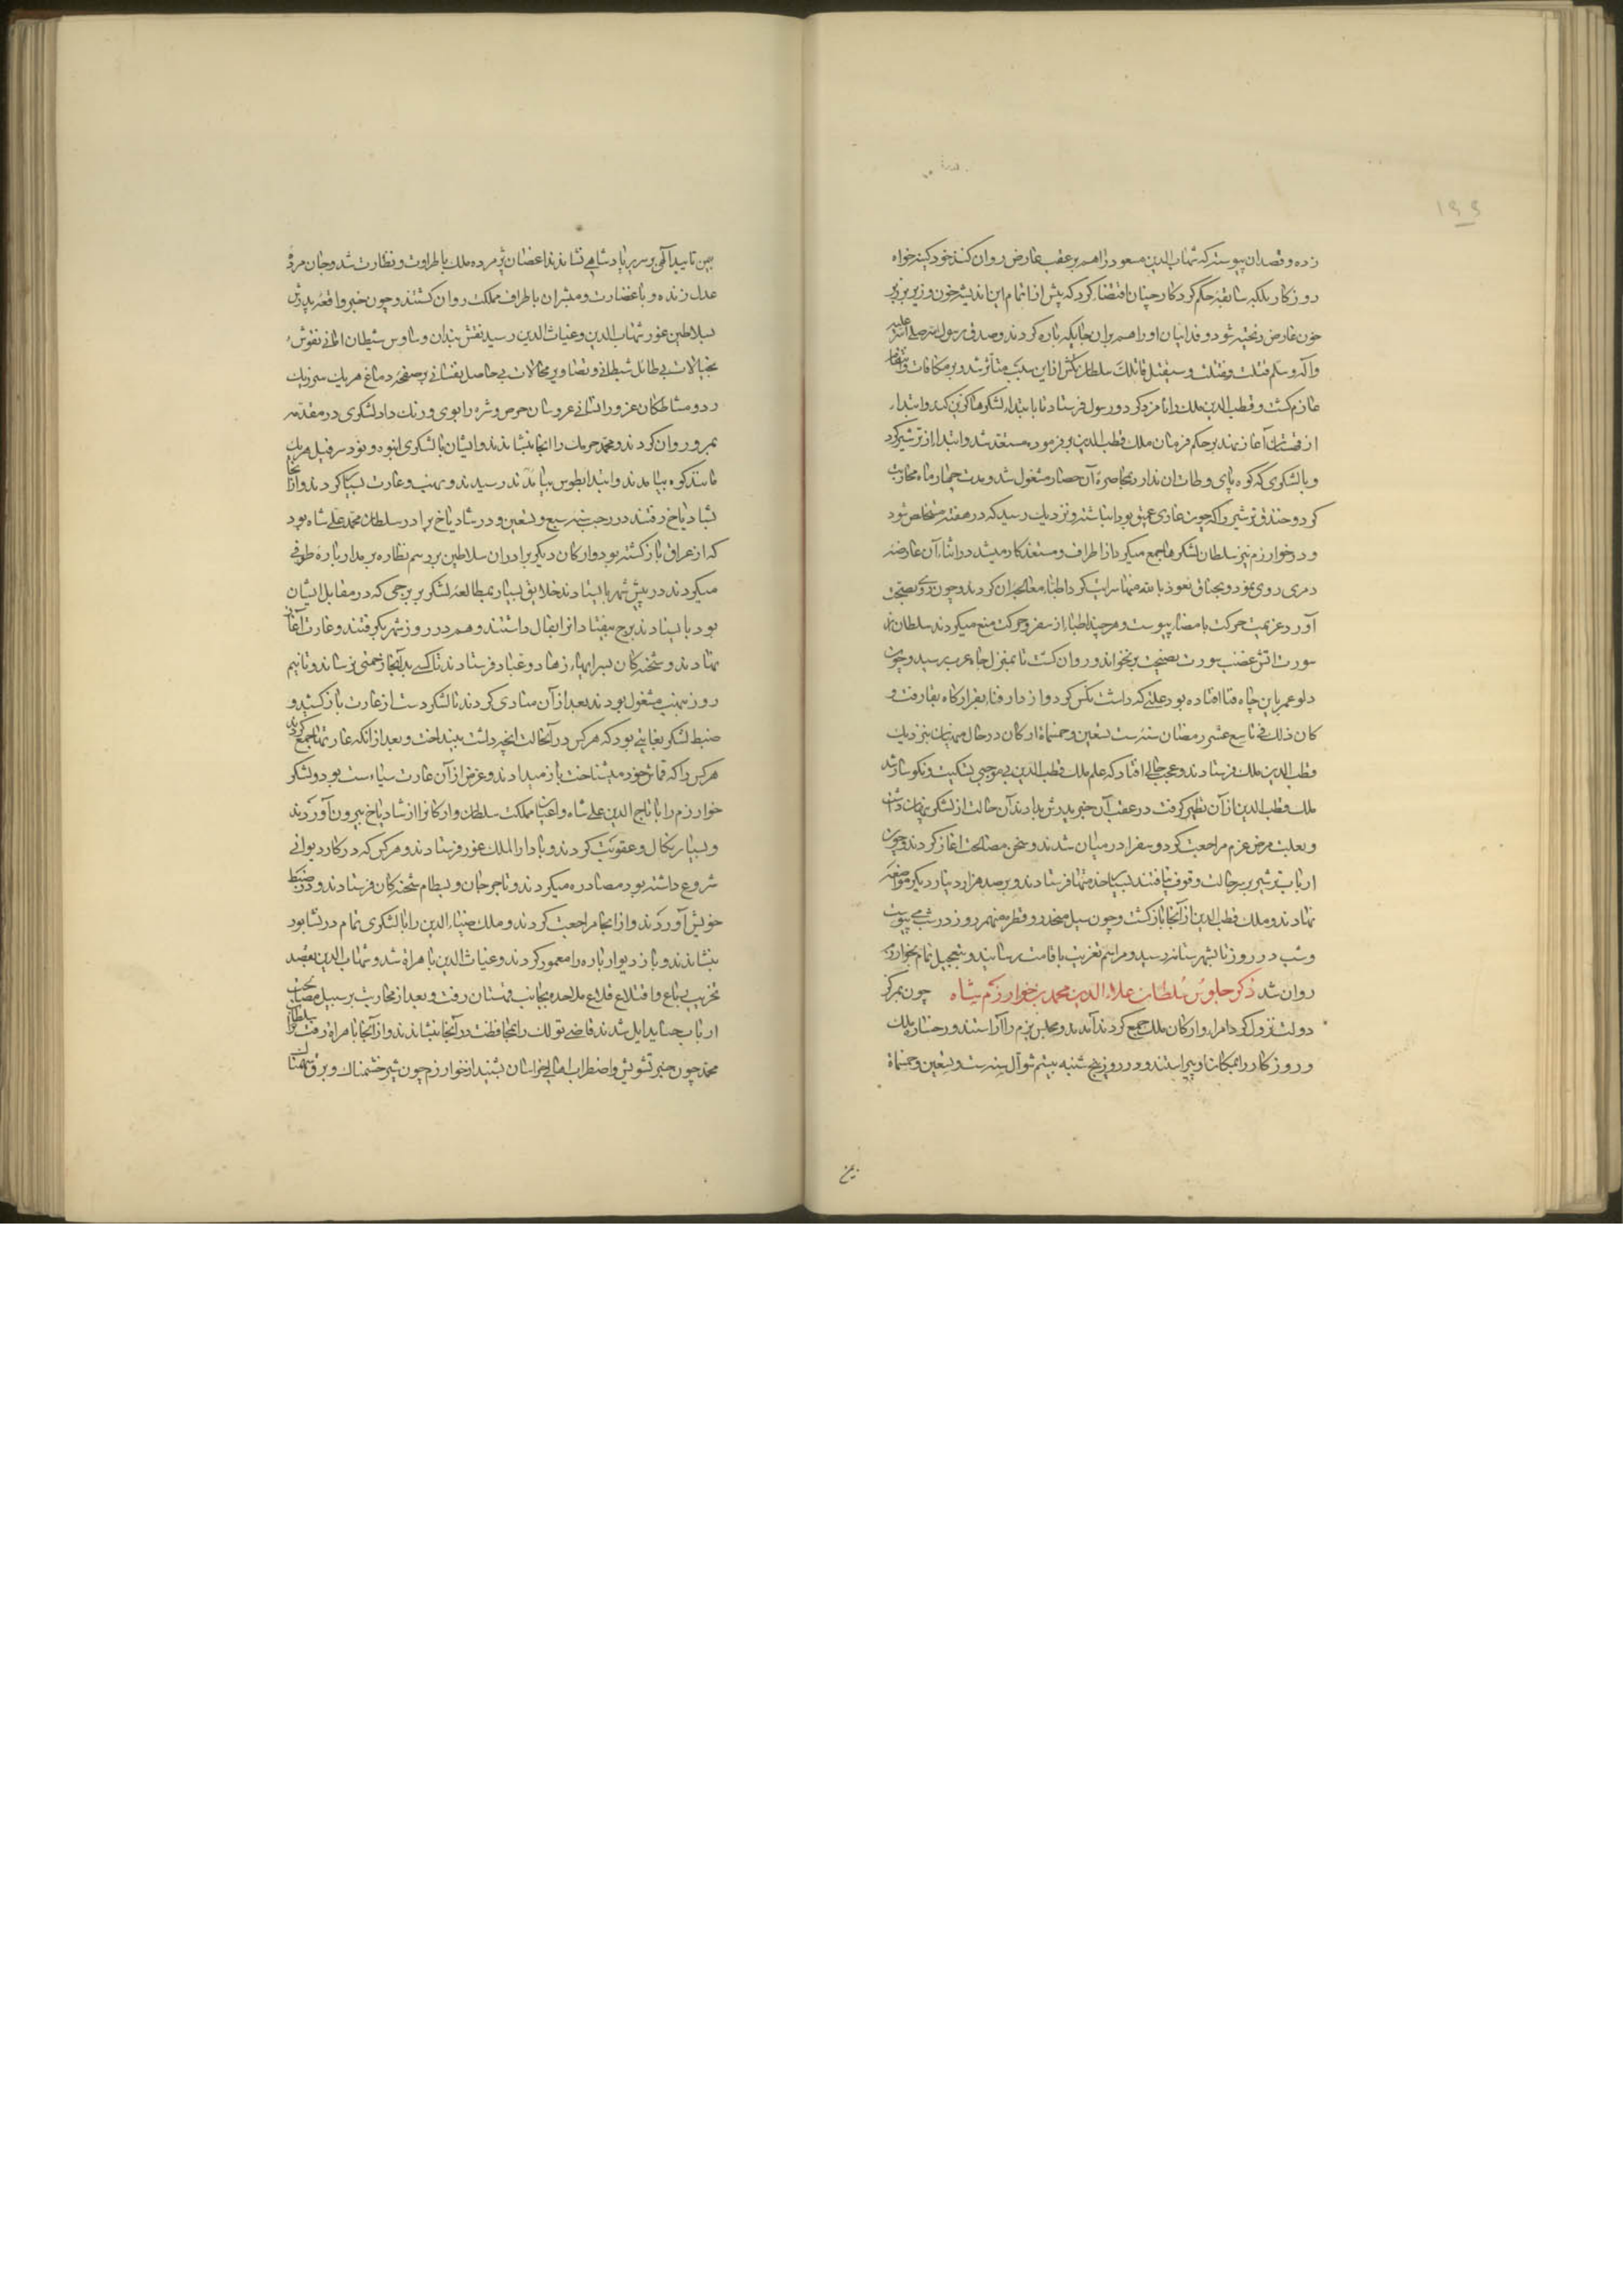 ۱۹۹
زده و قصد ان پیوسته که شهاب الدین مسعود را هم بر عقب عارض روان کند خود کینه خواه
روزکار بلکه سابقه حکم کردکار چنان اقتضا کرد که پیش از اتمام این اندیشه خون وزیر بر زبر
خون عارض ریخته شود و فدائیان او را هم بران جایکه پاره کردند و صدق رسول الله صلی الله علیه
وآله وسلم قتلت وقتلت وسیقتل قاتلک سلطان تکش از این سبب متاثر شد و بر مکافات و انتقام
عازم کشت و قطب الدین ملک را نامزد کرد و رسول فرستاد تا بابتدا لشکرها کزین کند و ابتدا
از قهستان آغاز نهد بر حکم فرمان ملک قطب الدین بر فرموده مستعد شد و ابتدا از ترشیز کرد
و با لشکری که کوه پای وطات ان ندارد بمحاصره آن حصار مشغول شد و مدت چهار ماه محاربت
کرد و خندق ترشیز را که چون غاری عمیق بود انباشته و نزدیک رسید که در هفته مستخلص شود
و در خوارزم نیز سلطان لشکرها جمع میکرد از اطراف و مستعد کار میشد در اثناء آن عارضه
دمری روی نمود و بخناق نعوذ بالله منها سرایت کرد اطبا معالجه ان کردند و چون روی بصحت
آورد عزیمت حرکت بامضا پیوست و هر چند اطبا از سفر و حرکت منع میکردند سلطان از
سورت اتش غضب سورت نصیحت بر نخواند و روان کشت تا بمنزل چاه عرب رسید و چون
دلو عمر باین چاه فنا افتاده بود علتی که داشت نکس کرد و از دار فنا بقرارکاه بقا رفت و
کان ذلک فی تاسع عشر رمضان سنه ست تسعین و خمسمائة ارکان در حال منهیان بنزدیک
قطب الدین ملک فرستادند و عجب حالی افتاد که علم ملک قطب الدین بی موجبی بشکست و نکوسار شد
ملک قطب الدین از آن تطیر کرفت در عقب آن خبر پدرش بدادند آن حالت از لشکر پنهان داشت
و بعلت مرض عزم مراجعت کرد و سفرا در میان شدند و سخن مصالحت اغاز کردند و چون
ارباب ترشیز بر سر حالت وقوف نیافتند بسیار خدمتها فرستادند و بر صد هزار دینار دیکر مواضعه
نهادند و ملک قطب الدین از آنجا باز کشت و چون سیل منحدر و قطره منهمر روز در شب می پیوست
و شب در روز تا بشهرستانه رسید و مراسم تعزیت باقامت رسانید و بتعجیل تمام بخوارزم
روان شد ذکر جلوس سلطان علاء الدین محمد بن خوارزم شاه چون بمرکز
دولت نزول کرد امراء و ارکان ملک جمع کردند آمدند و مجلس بزم را آراستند و رخساره ملک
و روزکار را بمکان او پیراستند و در روز پنج شنبه بیستم شوال سنه ست و تسعین و خمسمائة
بین تایید آلهی بر سریر پادشاهی نشاندند اغصان پژمرده ملک باطراوت و نظارت شد و جان مرده
عدل زنده و با غضارت و مبشران باطراف مملکت روان کشتند و چون خبر واقعه پدرش
بسلاطین غور شهاب الدین و غیاث الدین رسید نقش بندان وساوس شیطان امانی نقوش
بخیالات بی طائل شیطانی و تصاویر محالات بی حاصل نفسانی بر صفحه دماغ هر یک می زدند
و مشاطکان عز و را لسانی عروسان حرص و شره را بوی و رنک داد لشکری در مقدمه
بمرو روان کردند و محمد خرمک را انجا بنشاندند و ایشان با لشکری انبوه و نود سر فیل هر یک
مانند کوه بیامدند و ابتدا بطوس بیامدند رسیدند و نهب و غارت بسیار کردند و از آنجا
بشادیاخ رفتند در رجب سنه سبع و تسعین و در شادیاخ برادر سلطان محمد علی شاه بود
که از عراق باز کشته بود و ارکان دیکر برادران سلاطین بر رسم نظاره بر مدار باره طوفی
میکردند در پیش شهر بایستادند خلایق بسیار بمطالعه لشکر بر برجی که در مقابل ایشان
بود بایستادند برج بیفتاد انرا بفال داشتند و هم در روز شهر بکرفتند و غارت آغاز
نهادند و شحنه کان بسرایهاء زهاد و عباد فرستادند تا کسی بدانجا زحمتی نرساند و تا نیم
روز بنهب مشغول بودند بعد از آن منادی کردند تا لشکر دست از غارت باز کشید و
ضبط لشکر بغایتی بود که هر کس در آنحالت انچه داشت بینداخت و بعد از انکه غارتها جمع کردند
هر کس را که قماش خود میشناخت باز میدادند و غرض از آن غارت سیاست بود و لشکر
خوارزم را با تاج الدین علی شاه و اعیان مملکت سلطان و ارکانرا از شادیاخ بیرون آوردند
و بسیار نکال و عقوبت کردند و با دار الملک غور فرستادند و هر کس که در کار دیوانی
شروع داشته بود مصادره میکردند و تا جرجان و بسطام شحنه کان فرستادند و در ضبط
خویش آوردند و از انجا مراجعت کردند و ملک ضیاء الدین را با لشکری تمام در نشابور
بنشاندند و باز دیوار باره را معمور کردند و غیاث الدین با هراة شد و شهاب الدین بقصد
تخریب بقاع و اقتلاع قلاع ملاحده بجانب قهستان رفت و بعد از محاربت بر سبیل مصالحت
ارباب جناید ایل شدند قاضی تولک را بمحافظت در آنجا بنشاندند و از آنجا با هراة رفت سلطان
محمد چون خبر تشویش و اضطراب اهالی خراسان بشنید از خوارزم چون شیر خشمناک و برق سهمناک